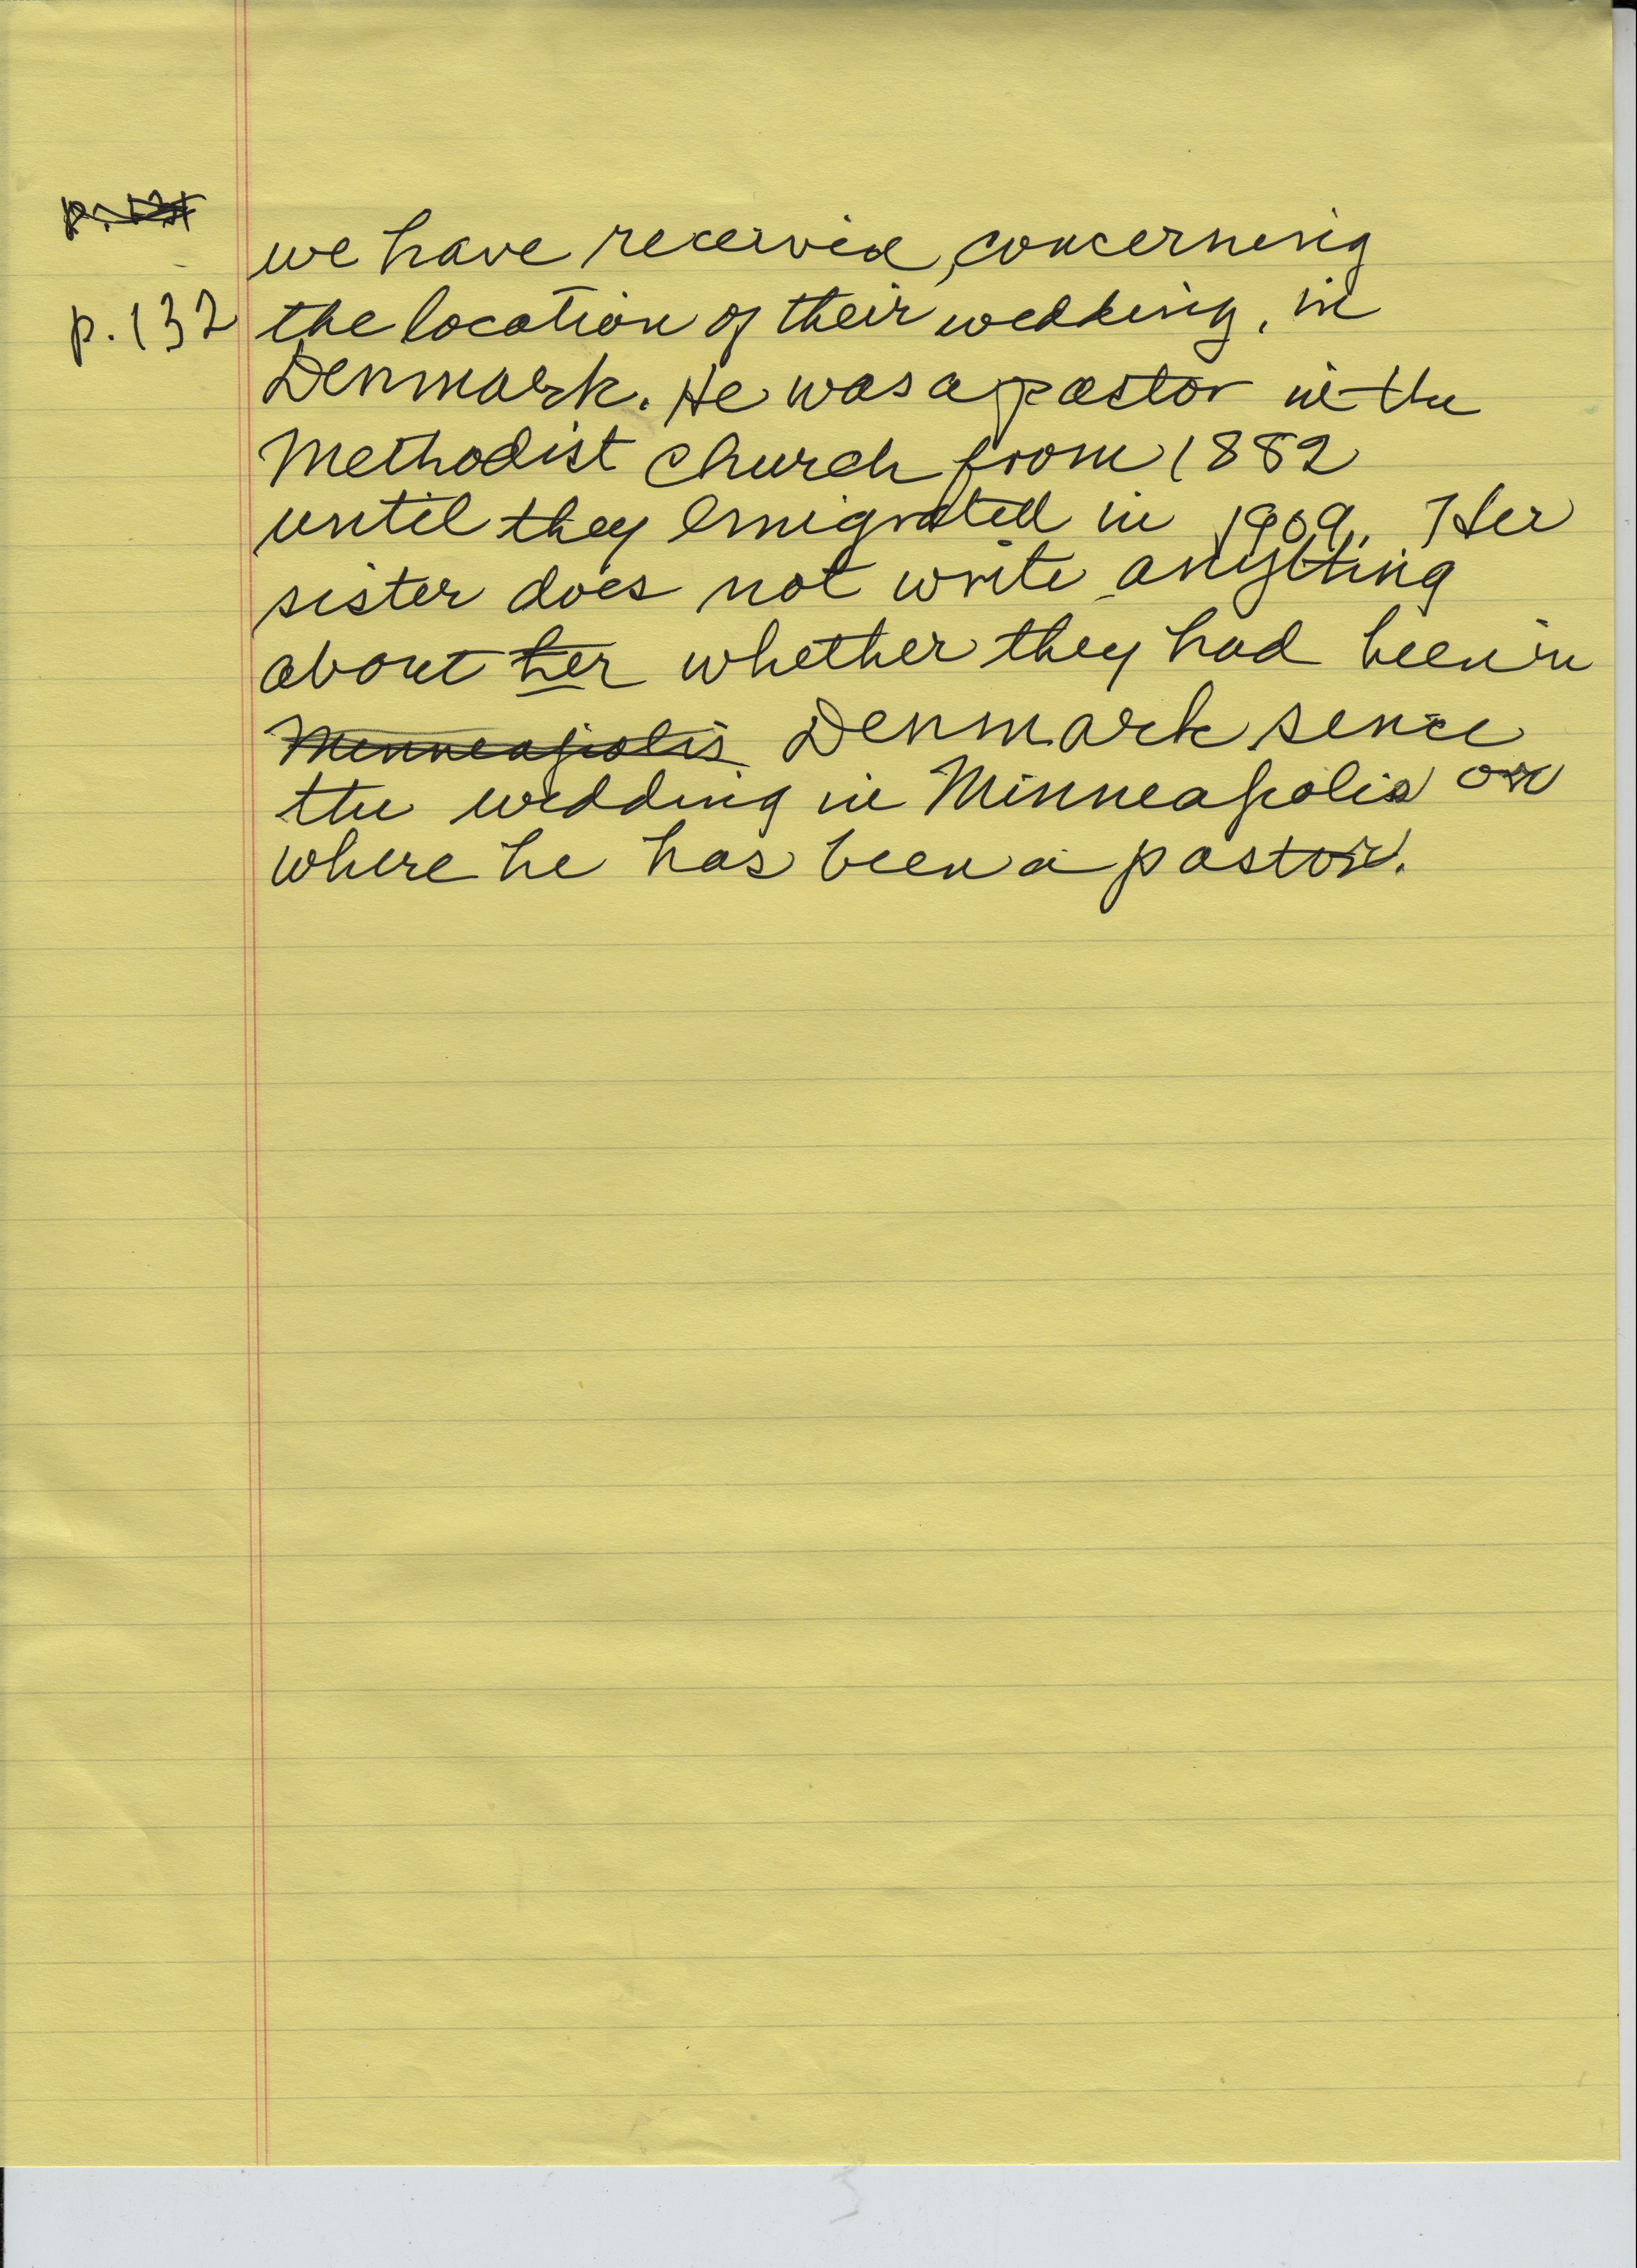 p. 131
we have received, concerning
p. 132 the location of their wedding, in
Denmark. He was a pastor in the
Methodist Church from 1882
until they emigrated in 1909. Her
sister does not write anything
about her whether they had been in
Minneapolis Denmark sence
the wedding in Minneapolis or
where he has been a pastor.